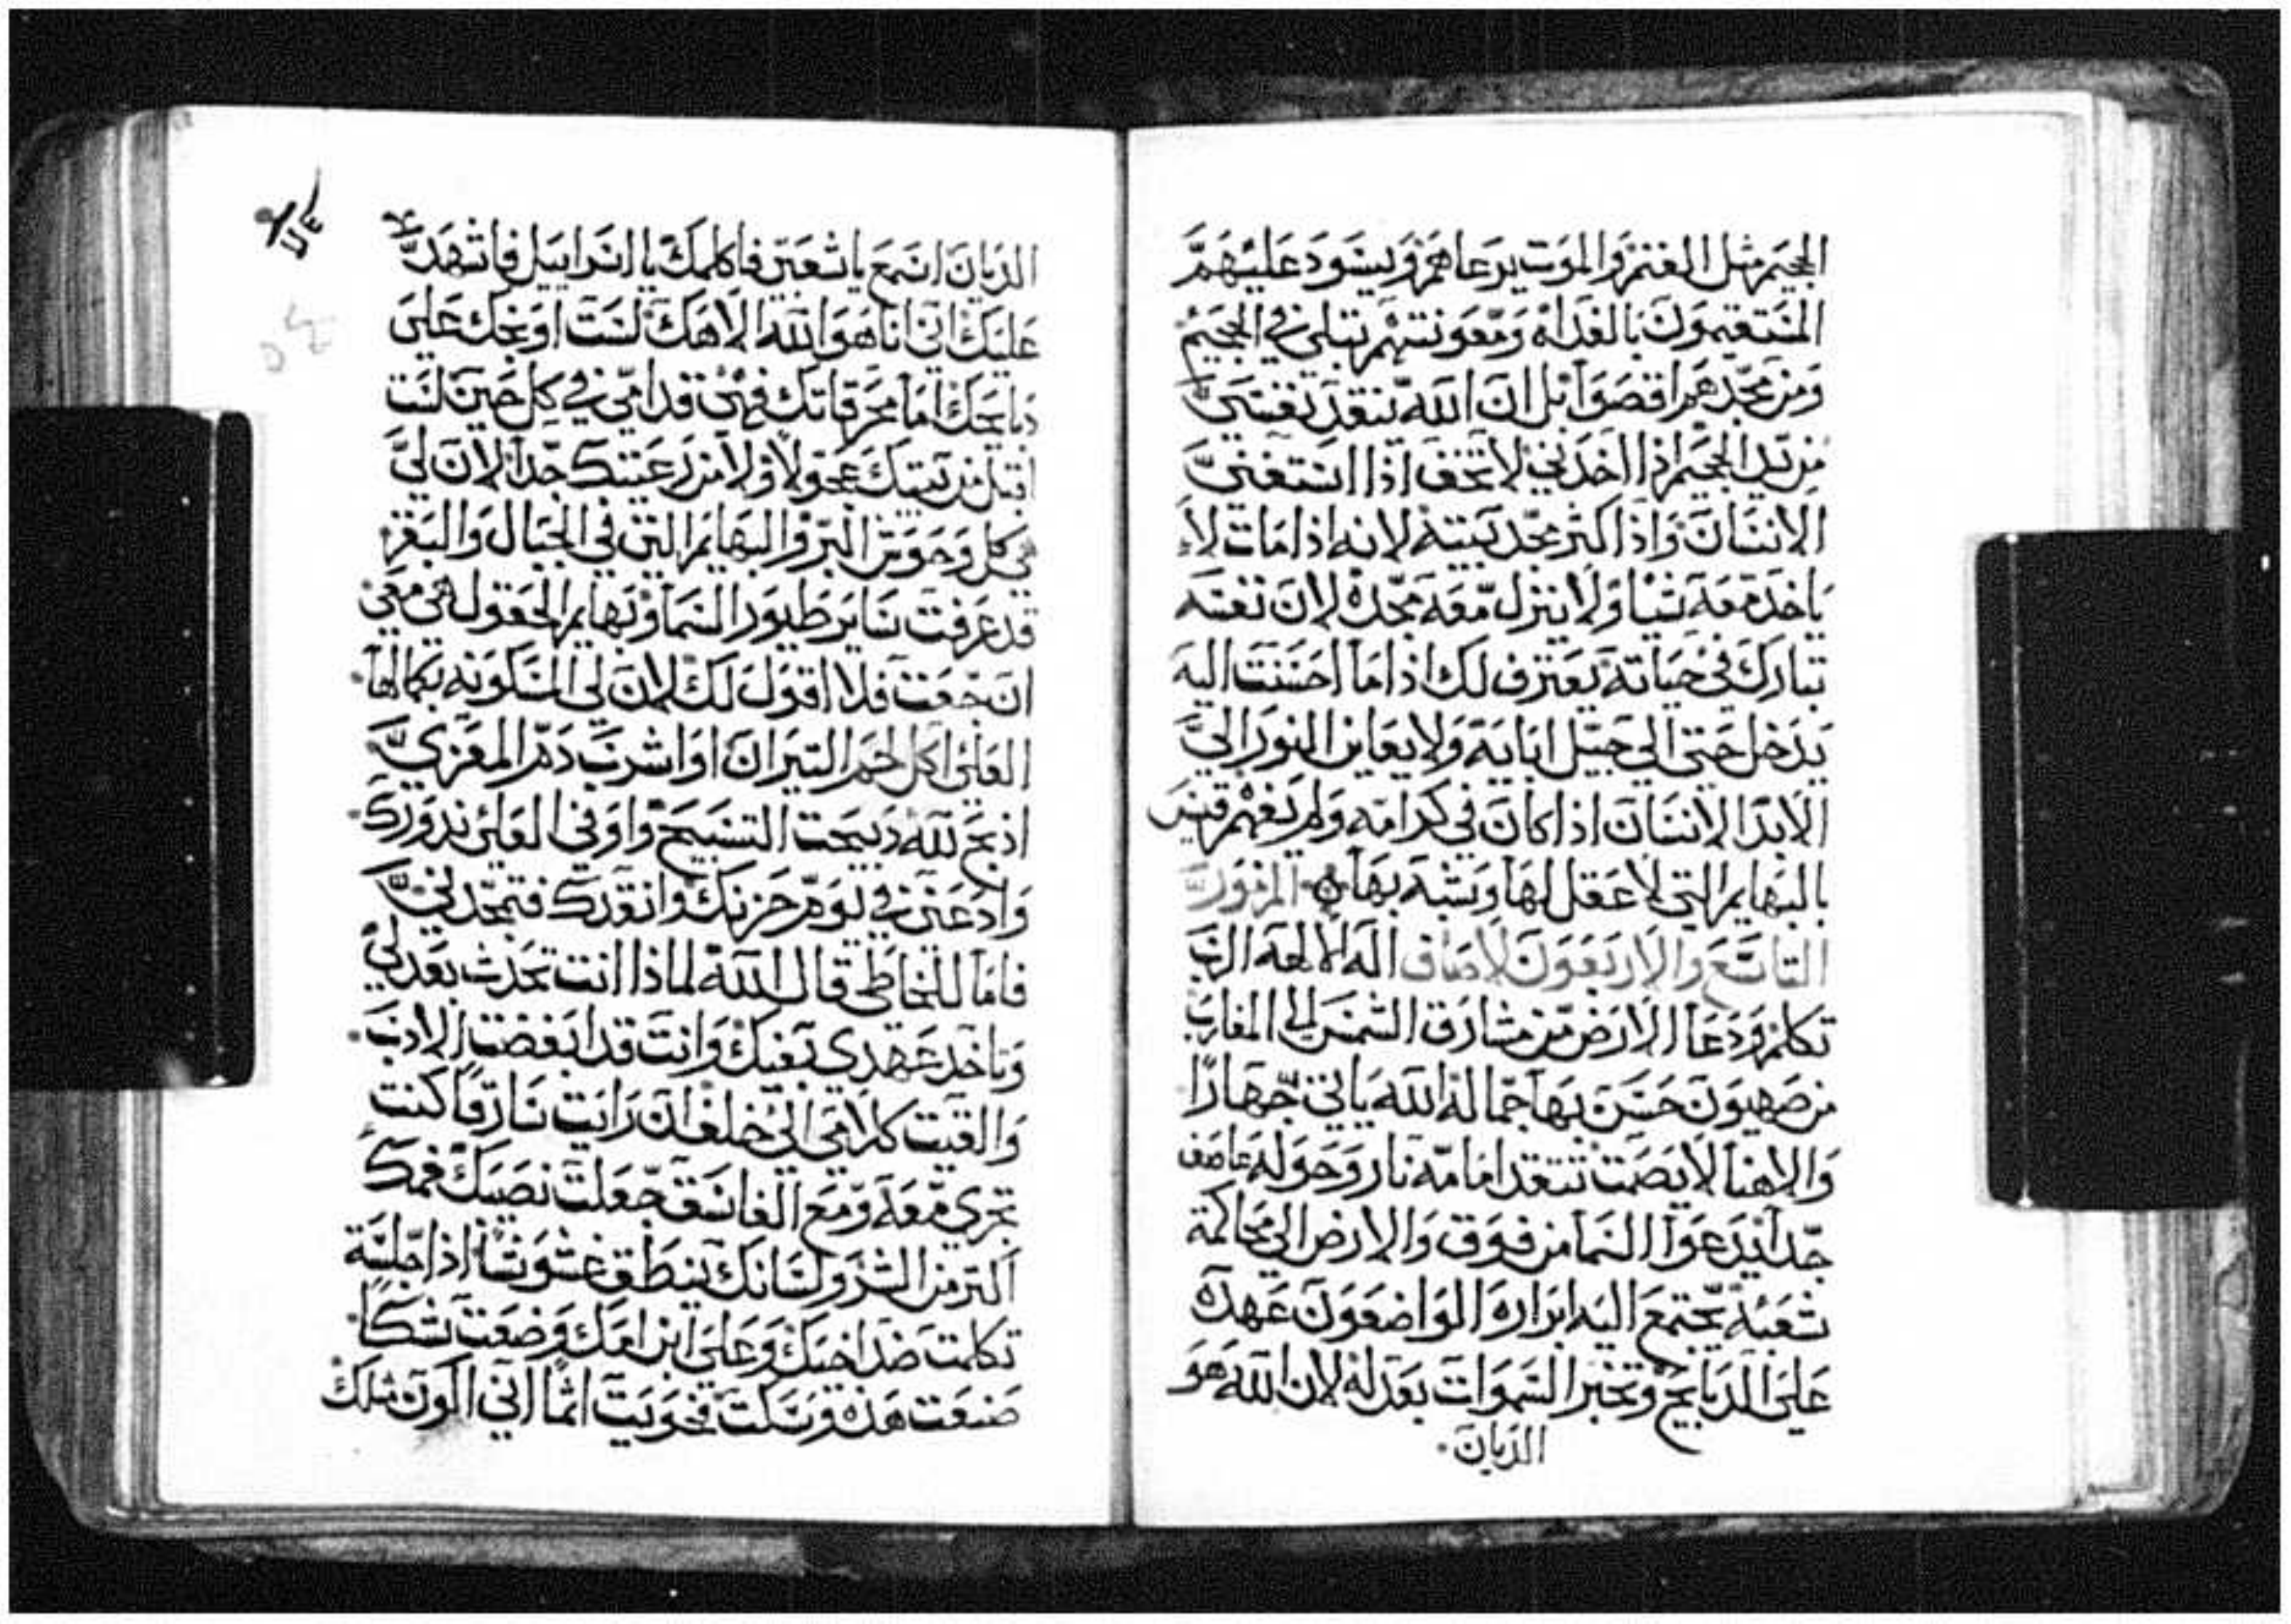 الجحيم مثل الغنم والموت يرعاهم ويسود عليهم
المستقيمون بالغداه ومعونتهم تبلي في الجحيم
ومن مجدهم اقصوا بل ان الله ينقد نفسي
من يد الجحيم اذا اخدني لا تخف اذا استغني
الانسان واذا كثر مجد بيته لانه اذا مات لا
ياخد معه شيا ولا ينزل معه مجده لان نفسه
تبارك في حياته يعترف لك اذا ما احسنت اليه
يدخل حتي الي جيل ابايه ولا يعاين النور الي
الابد الانسان اذا كان في كرامه ولم يفهم قيس
بالبهايم التي لا عقل لها وشبه بها المزمور
التاسع والاربعون لاصاف اله الالهه الرب
تكلم ودعا الارض من مشارق الشمس الي المغارب
من صهيون حسن بها جماله الله ياتي جهارا
والاهنا لا يصمت تتقد امامه نار وحوله عاصف
جدا يدعوا السما من فوق والارض الي محاكمة
شعبه يجتمع اليه ابراره الواضعون عهده
علي الدبايح وتخبر السموات بعدله لان الله هو
الديان
الديان اسمع يا شعبي فاكلمك يا اسراييل فاشهد
عليك اني انا هو الله الاهك لست اوبخك علي
دبايحك اما محرقاتك فهي قدامي في كل حين لست
اقبل من بيتك عجولا ولا من رعيتك جدا لان لي
هي كل وحوش البر والبهايم التي في الجبال والبقر
قد عرفت ساير طيور السما وبهايم الحقول هي معي
ان جعت فلا اقول لك لان لي المسكونه بكمالها
العلي اكل لحم التيران او اشرب دم المعزي
ادبح لله دبيحت التسبيح واوفي العلي ندورك
وادعني في يوم حزنك وانقدك فتمجدني
فاما للخاطي قال الله لماذا انت تحدث بعدلي
وتاخد عهدي بفيك وانت قد ابغضت الادب
والقيت كلامي الي خلف ان رايت سارقا كنت
تجري معه ومع الفاسق جعلت نصيبك فمك
اكتر من الشر ولسانك ينطق غشوشا اذا جلسة
تكلمت ضد اخيك وعلي ابن امك وضعت شكا
صنعت هذه وسكت فحويت اثما اني اكون مثلك